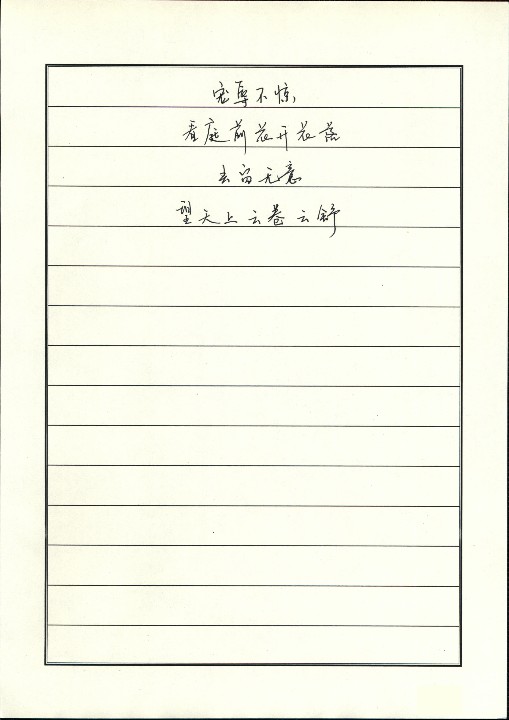 宠辱不惊,
看庭前花开花落
去留无意
望天上云卷云舒